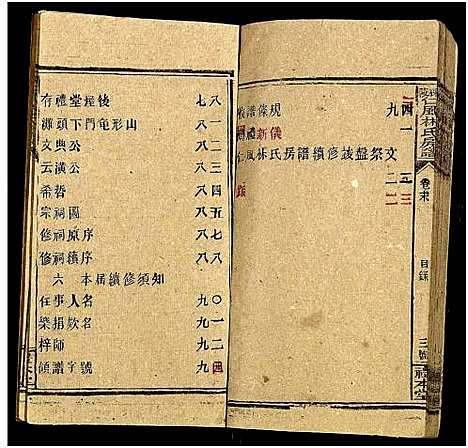 存禮堂捏後 七八
源頭下門龜形山 八一
文典公 八二
云漢公 八四
希哲 八四
宗祠圖 八五
修祠原序 八七
修祠續序 八八
六 本届續修須知
任事人名 九〇
樂捐欵名 九一
梓師 九二
領譜字號 九四
譜條規 九四
新儀 一
仁風林氏房譜續修祓盤祭文
仁風林氏房譜
卷末
目錄